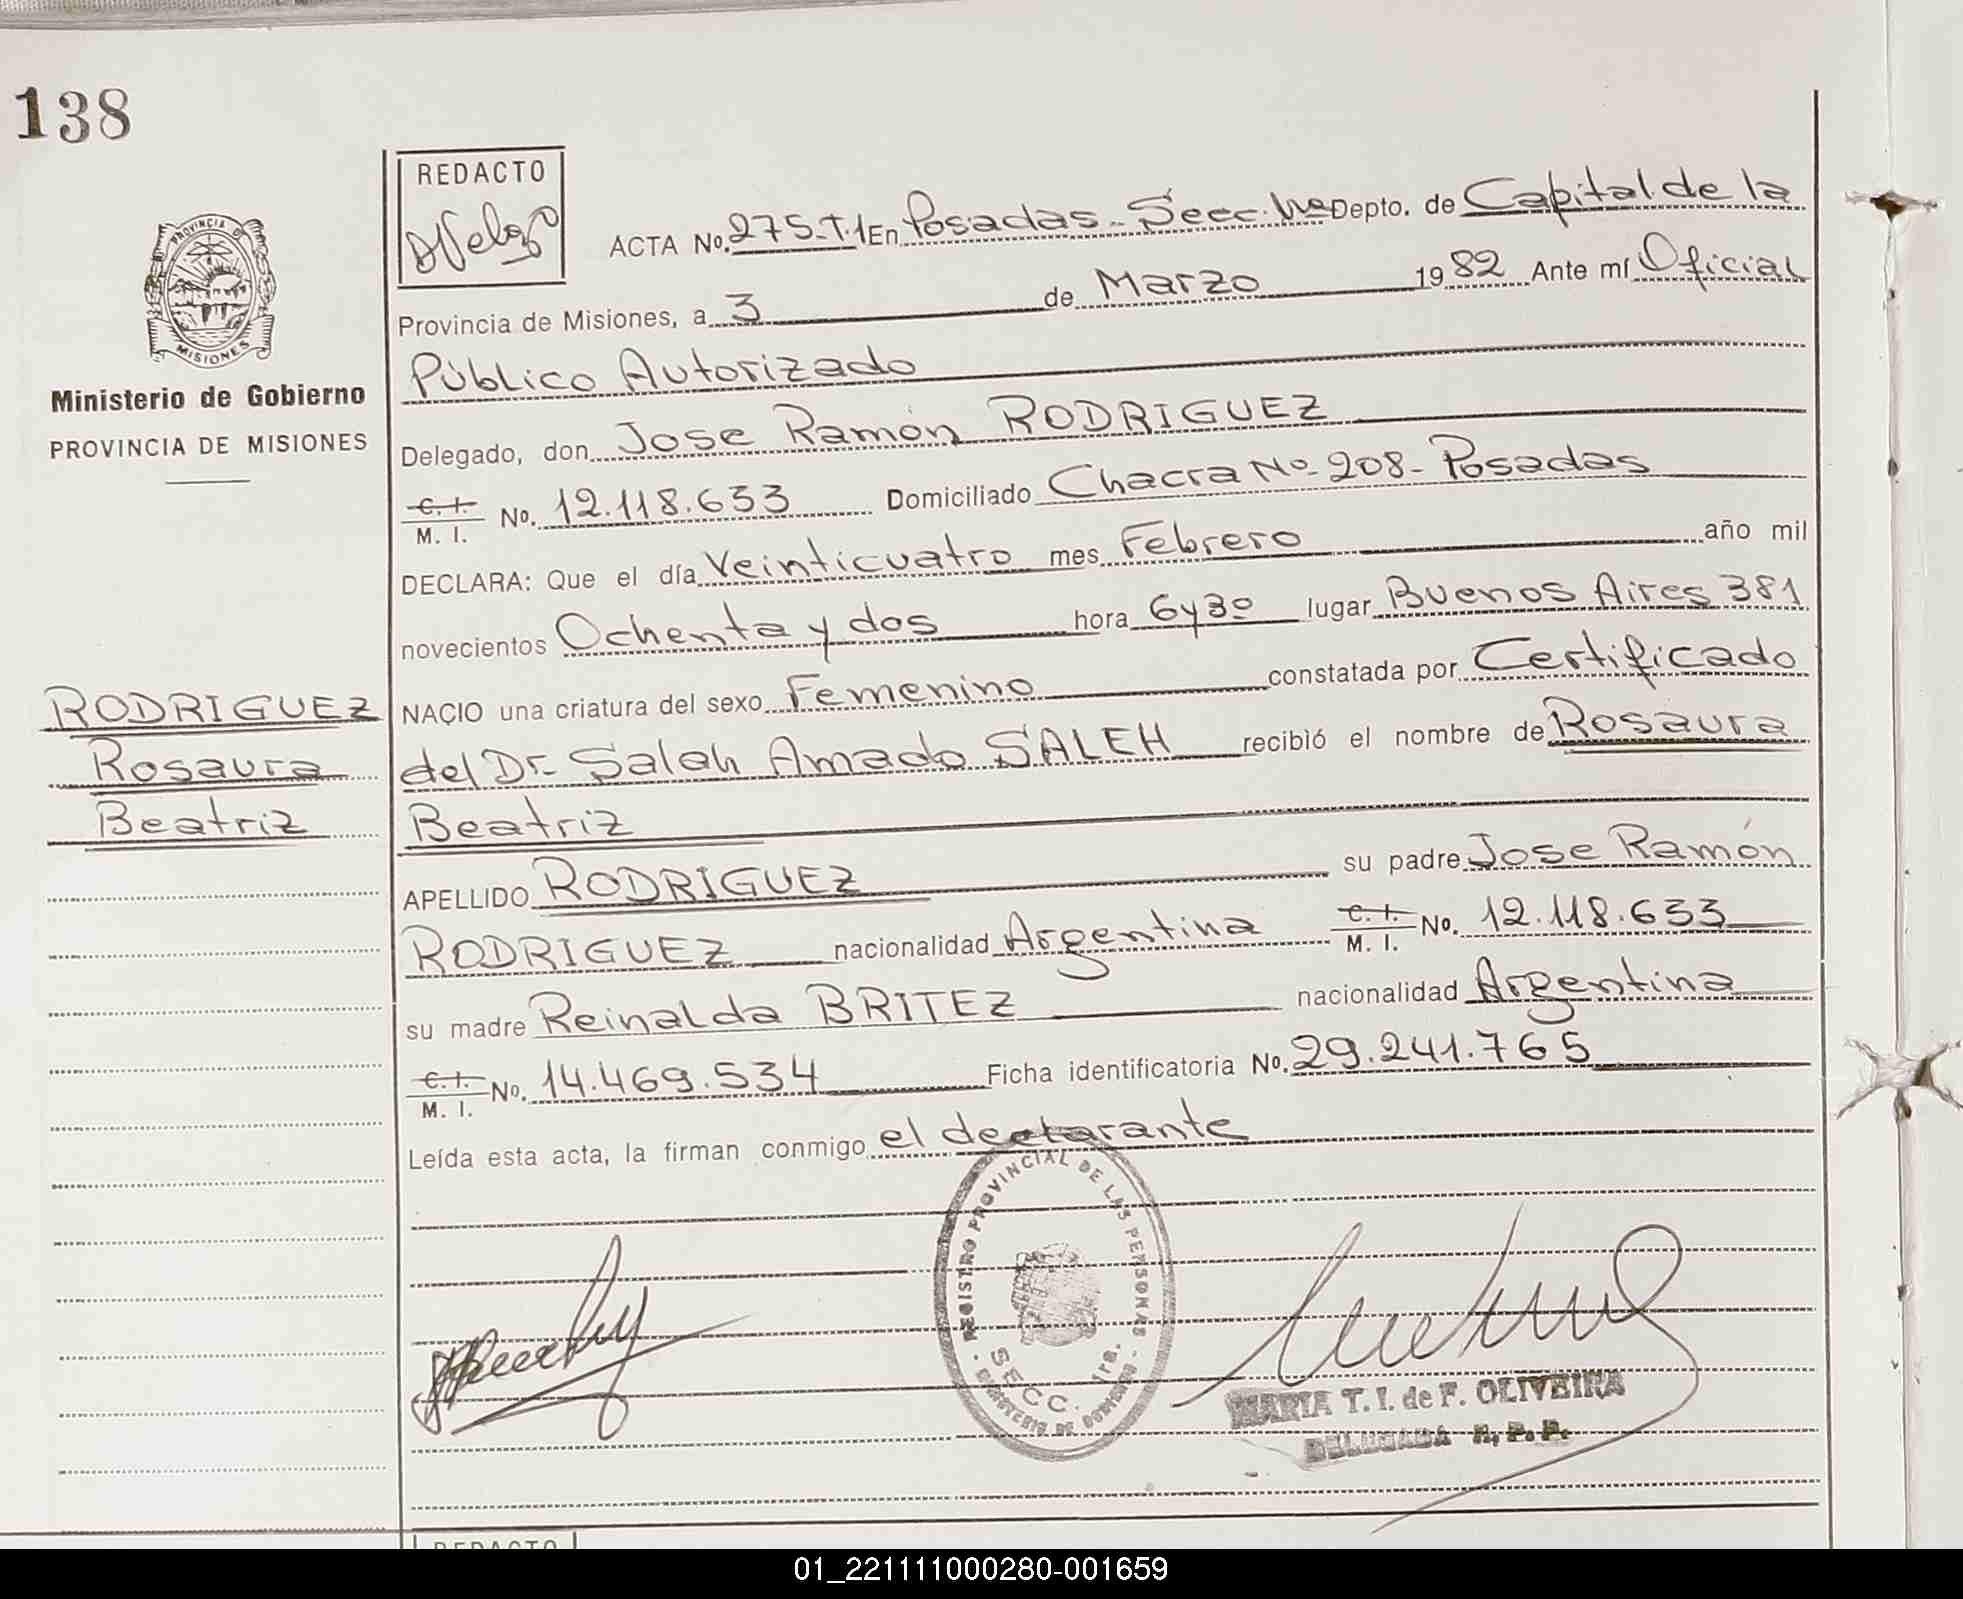 138
REDACTO
ACTA No. 275-T.1 En Posadas - Secc. 1ra Depto. de Capital de la
Provincia de Misiones, a 3 de Marzo 1982 Ante mí Oficial
Público Autorizado
PROVINCIA DE
MISIONES
Ministerio de Gobierno
PROVINCIA DE MISIONES
Delegado, don Jose Ramón RODRIGUEZ
C. I.
M. I. No. 12.118.633 Domiciliado Chacra No-208- Posadas
DECLARA: Que el día Veinticuatro mes Febrero año mil
novecientos Ochenta y dos hora 6y30 lugar Buenos Aires 381
NACIO una criatura del sexo Femenino constatada por Certificado
del Dr- Salah Amado SALEH recibió el nombre de Rosaura
Beatriz
RODRIGUEZ
Rosaura
Beatriz
APELLIDO RODRIGUEZ su padre Jose Ramón
RODRIGUEZ nacionalidad Argentina C. I.
M. I. No. 12.118.633
su madre Reinalda BRITEZ nacionalidad Argentina
C. I.
M. I. No. 14.469.534 Ficha identificatoria No. 29.241.765
Leída esta acta, la firman conmigo el declarante
REGISTRO PROVINCIAL DE LAS PERSONAS
SECC. 1ra.
MINISTERIO DE GOBIERNO
MARIA T. I. de F. OLIVEIRA
DELEGADA R. P. P.
REDACTO
01_221111000280-001659